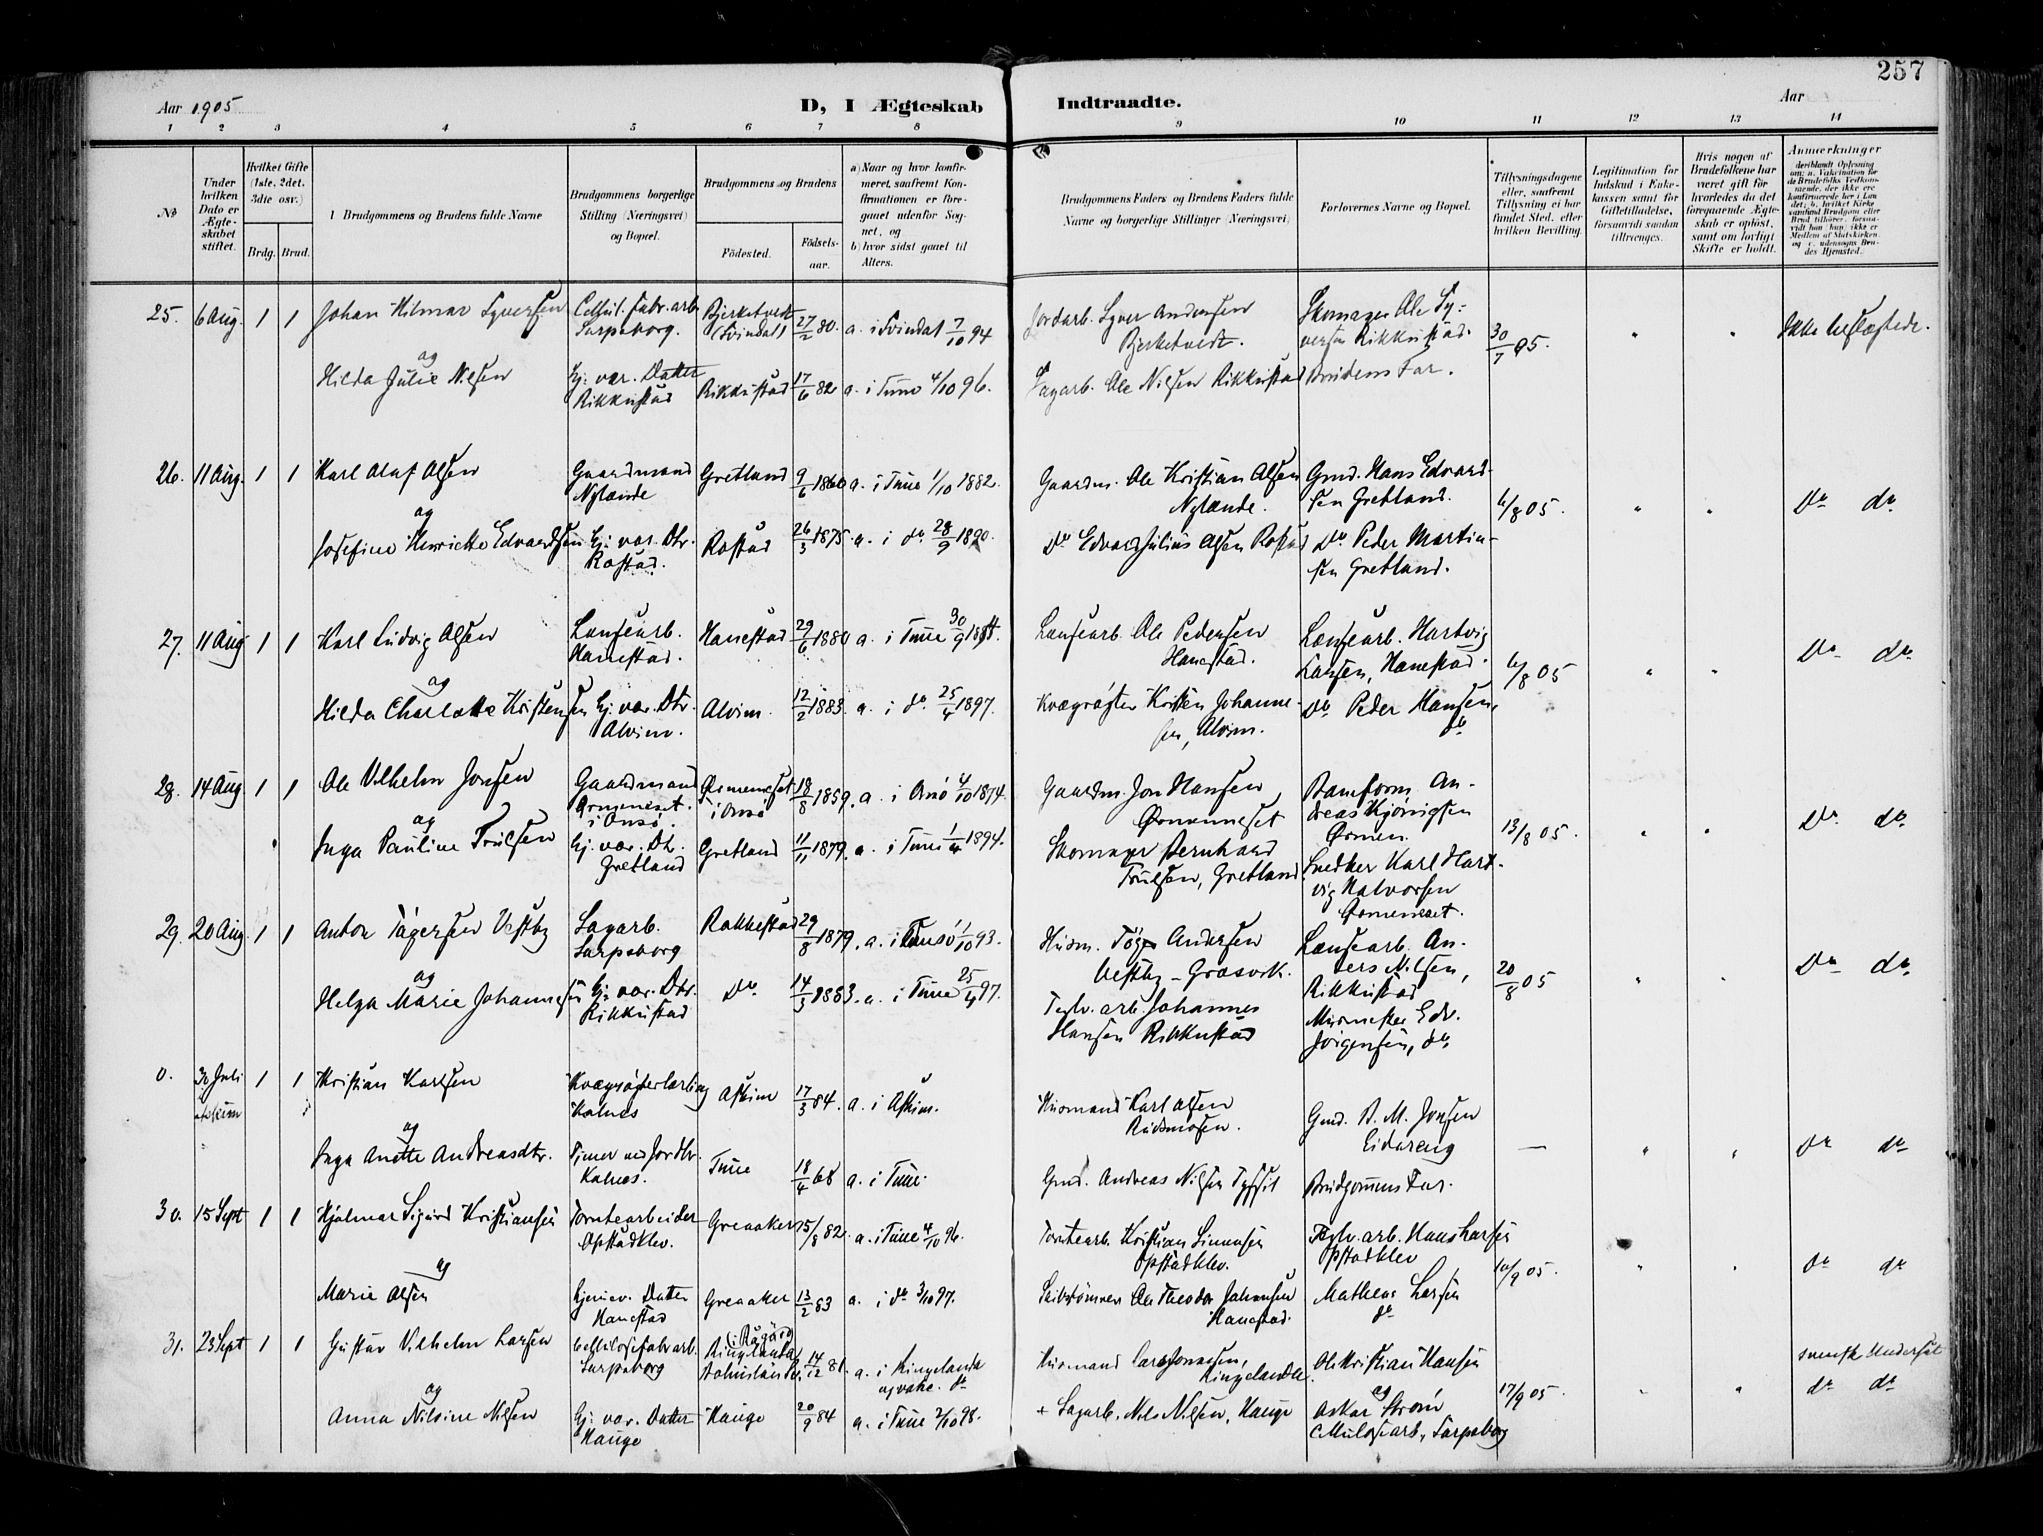 257
Aar 1905
D, I Ægteskab Indtraadte.
Aar
1 2 3 4 5 6 7 8 9 10 11 12 13 14
No
Under hvilken Dato er Ægteskabet stiftet.
Hvilket Gifte (1ste, 2det, 3die osv.)
Brdg. Brud.
1 Brudgommens og Brudens fulde Navne
Brudgommens borgerlige Stilling (Næringsvei) og Bopæl.
Brudgommens og Brudens
Födested.
Födselsaar.
a) Naar og hvor konfirmeret, saafremt Konfirmationen er foregaaet udenfor Sognet, og
b) hvor sidst gaaet til Alters.
Brudgommens Faders og Brudens Faders fulde Navne og borgerlige Stillinger (Næringsvei)
Forlovernes Navne og Bopæl.
Tillysningsdagene eller, saafremt Tillysning ei har fundet Sted, efter hvilken Bevilling.
Legitimation for Indskud i Enkekassen samt for Giftetilladelse, forsaavidt saadan tiltrænges.
Hvis nogen af Brudefolkene har været gift för hvorledes da det foregaaende Ægteskab er oplöst, samt om lovligt Skifte er holdt.
Anmærkninger
25. 6 Aug. 1 1 Johan Hilmar Syversen
Cellul. fabr. arb. Sarpsborg.
Bjerketvedt (Svindal) 27/2 80. a. i Svindal 7/10 94
Jordarb. Syver Andersen Bjerketvedt.
Skomager Ole Syversen Rikkustad.
30/7 05.
Ikke beslægtede.
og
Hilda Julie Nilsen
Hj. vær. Datter Rikkustad
Rikkustad 17/6 82 a. i Tune 4/10 96.
Sagarb. Ole Nilsen Rikkustad
Brudens Far.
26. 11 Aug. 1 1 Karl Olaf Olsen
Gaardmand Nylænde
Gretland 9/6 1860 a. i Tune 1/10 1882.
Gaardm. Ole Kristian Olsen Nylænde.
Gmd. Hans Edvardsen Gretland.
6/8 05.
Do do.
og
Josefine Henriette Edvardsen
Hj. vær. Dtr. Rostad.
Rostad 26/3 1875 a. i do 28/9 1890.
Do Edvard Julius Olsen Rostad
Do Peder Martinsen Gretland.
27. 11 Aug 1 1 Karl Ludvig Olsen
Lænsearb. Hanestad.
Hanestad 29/6 1880 a. i Tune
Lænsearb. Ole Pedersen Hanestad.
Lænsearb. Hartvig Larsen, Hanestad.
6/8 05
Do do.
og
Hilda Charlotte Kristensen
Hj. vær. Dtr. Alvim.
Alvim. 12/2 1883. a. i do. 25/4 1897.
Kvægrøgter Kristen Johannesen, Alvim.
Do Peder Hansen, do
28. 14 Aug 1 1 Ole Vilhelm Jonsen
Gaardmand Ørmeneset i Onsø.
Ørmeneset i Onsø 18/8 1859. a. i Onsø 4/10 1874.
Gaardm. Jon Hansen Ørmenneset
Andreas Kjønigsen Ørmen.
13/8 05.
Do. do.
og
Inga Pauline Trulsen
Hj. vær. Dtr. Gretland
Gretland 11/11 1879. a. i Tune 1/4 1894.
Skomager Bernhard Trulsen, Gretland
Snedker Karl Hartvig Halvorsen Ørmeneset.
29. 20 Aug. 1 1 Anton Tøgersen Vestby
Sagarb. Sarpsborg
Rakkestad 29/8 1879. a. i Onsø 1/10 93.
Husm. Tøger Andersen Vestby - Græsvik.
Lænsearb. Anders Nilsen, Rikkustad
20/8 05
Do do.
og
Helga Marie Johannesen
Hj. vær. Dtr. Rikkustad
Do 14/3 1883. a. i Tune 25/4 97.
Teglv. arb. Johannes Hansen Rikkustad
Murmester Edv. Jörgensen, do.
0. 30 Juli 1 1 Kristian Karlsen
Kvægrøgterlærling Kalnes
Askim 17/3 84. a. i Askim.
Husmand Karl Olsen Rudsmosen.
Gmd. B. M. Jonsen Eidareng
Do do.
og
Inga Anette Andreasdtr.
Kalnes.
Tune 18/4 68 a. i Tune.
Gmd. Andreas Nilsen
Brudgommens Far.
30. 15 Sept 1 1 Hjalmar Sigurd Kristiansen
Tomtearbeider Opstadklev.
Greaaker 15/8 82. a. i Tune 4/10 96.
Tomtearb. Kristian Simensen Opstadklev.
Teglv. arb. Hans Larsen Opstadklev
10/9 05.
Do do
og
Marie Olsen
Hjemv. Datter Hanestad
Greaaker 13/2 83 a. i do 3/10 97.
Skibstømrer Ole Theodor Johansen Hanestad.
Matheus Larsen do
31. 23 Sept 1 1 Gustav Vilhelm Larsen
Cellulosefabr. arb. Sarpsborg
14/12 81. a. i Ringelanda
Husmand Lars Jonassen, Ringelanda
Ole Kristian Hansen
17/9 05.
svensk Undersåt
do do
og
Anna Nilsine Nilsen
Hj. vær. Datter Hauge
Hauge 20/9 84 a. i Tune 2/10 98.
+ Sagarb. Nils Nilsen, Hauge
og Oskar Strøm Cellulosearb., Sarpsborg